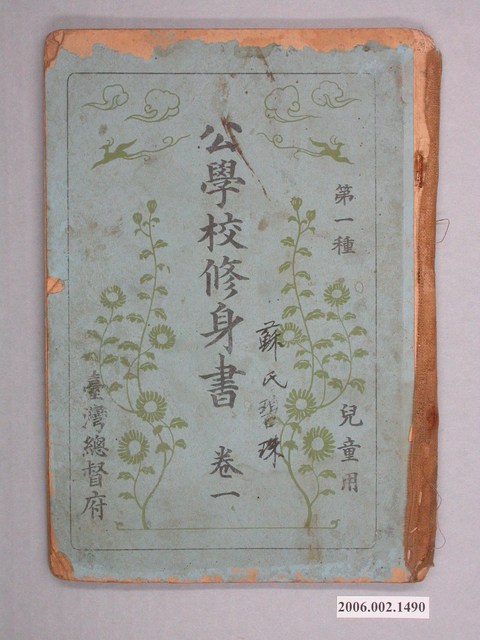 第一種
兒童用
公學校修身書 卷一
蘇氏碧珠
臺灣總督府
2006.002.1490